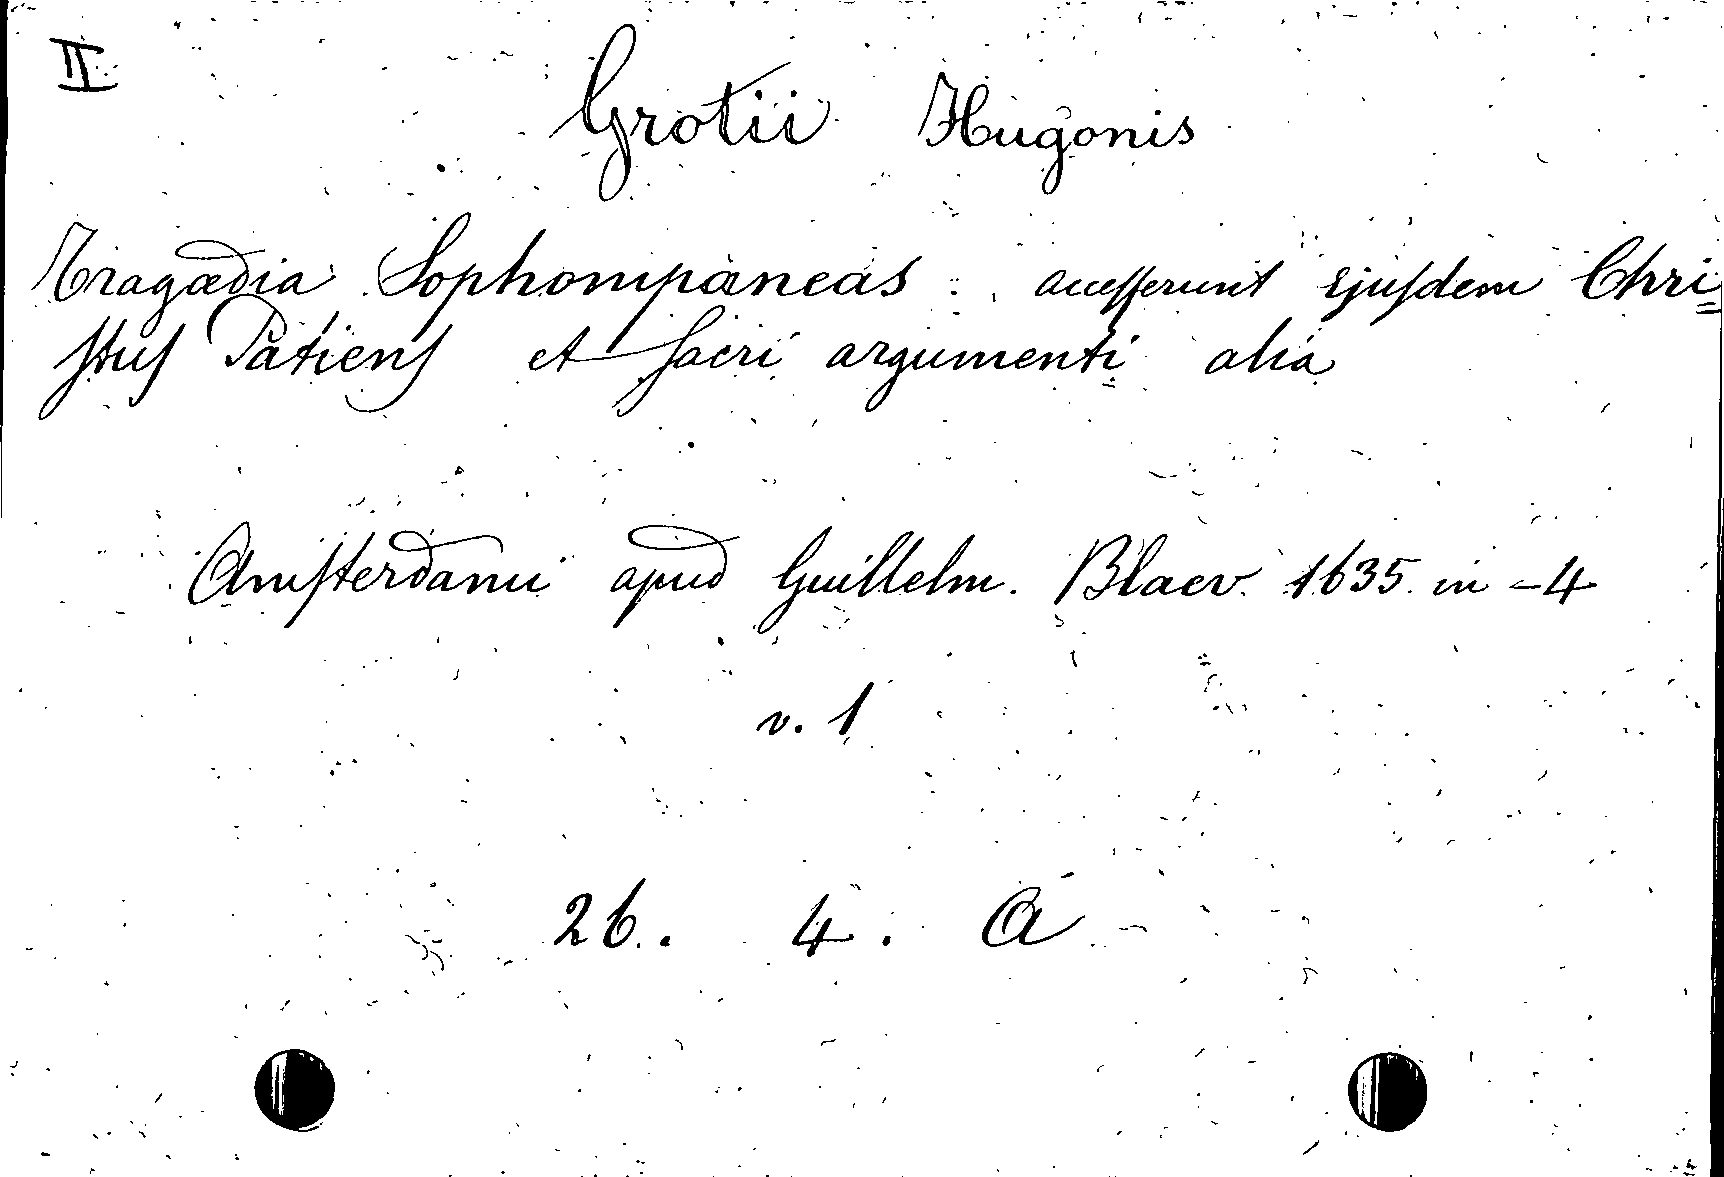 II
Grotii Hugonis
Tragædia Sophompaneas. accesserunt ejusdem Chri=
stus Patiens et sacri argumenti alia
Amsterdami apud Guillelm. Blaev. 1635. in -4
v. 1
26. 4. A